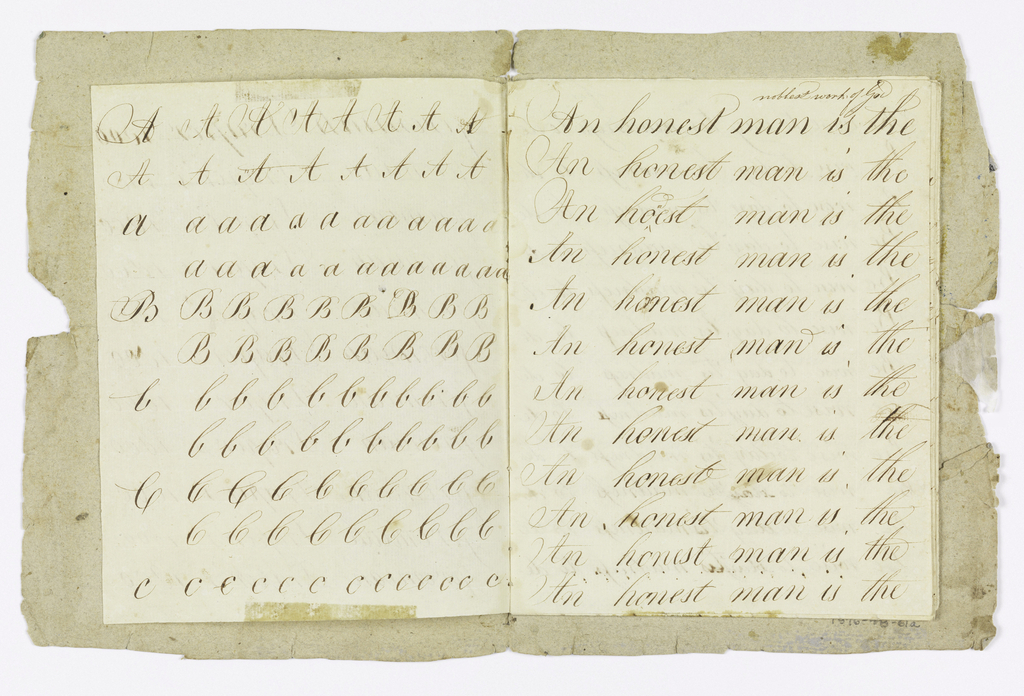 A A A A A A A A
A A A A A A A A
a a a a a a a a a a a a
a a a a a a a a a a a a
B B B B B B B B B
B B B B B B B B
b b b b b b b b b b b
b b b b b b b b b b
C C C C C C C C C C
C C C C C C C C C
c c c c c c c c c c c c c
noblest work of God
An honest man is the
An honest man is the
An hoest man is the
An honest man is the
An honest man is the
An honest man is the
An honest man is the
An honest man is the
An honest man is the
An honest man is the
An honest man is the
An honest man is the